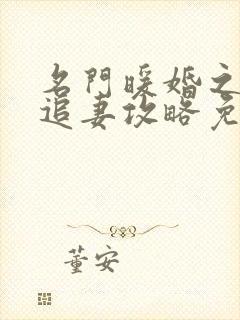 名門暖婚之
追妻攻略免
董安